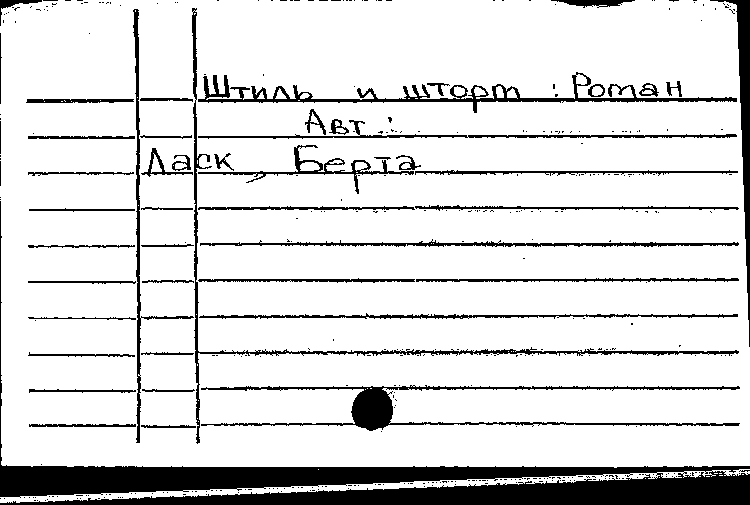 Штиль и шторм : Роман
Авт.:
Ласк, Берта